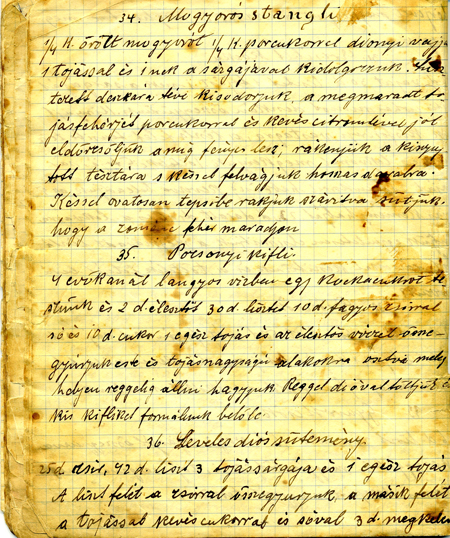 34. Mogyorós stangli
1/4 K. őrölt mogyorót 1/4 K. porcukorrel diónyi vajja
1 tojással és 1 nek a sárgájával kidolgozzuk.
tezett deszkára téve kisodorjuk, a megmaradt to
jásfehérjét porcukorral és kevés citromlével jól
eldörzsöljük amíg fényes lesz, rákenjük a kinyuj
tott tésztára s késsel felvágjuk hosszas darabra.
Késsel ovatosan tepsibe rakjuk szárítva sütjük
hogy a fehér maradjon
35. Pozsonyi kifli.
4 evőkanál langyos vízben egy kockacukrot te
szünk és 2 d élesztőt 30 d. lisztet 10 d. fagyos zsírral
só és 10 d. cukor 1 egész tojás és az élesztős vízzel össze
gyúrjuk este és tojásnagyságú alakokra osztva meleg
helyen reggelig állni hagyjuk Reggel dióval töltjük és
kis kifliket formálunk belőle.
36. Leveles diós sütemény.
25 d zsír, 42 d. liszt 3 tojássárgája és 1 egész tojás
A liszt felét a zsírral összegyurjuk a másik felét
a tojással kevés cukorral és sóval 3 d.